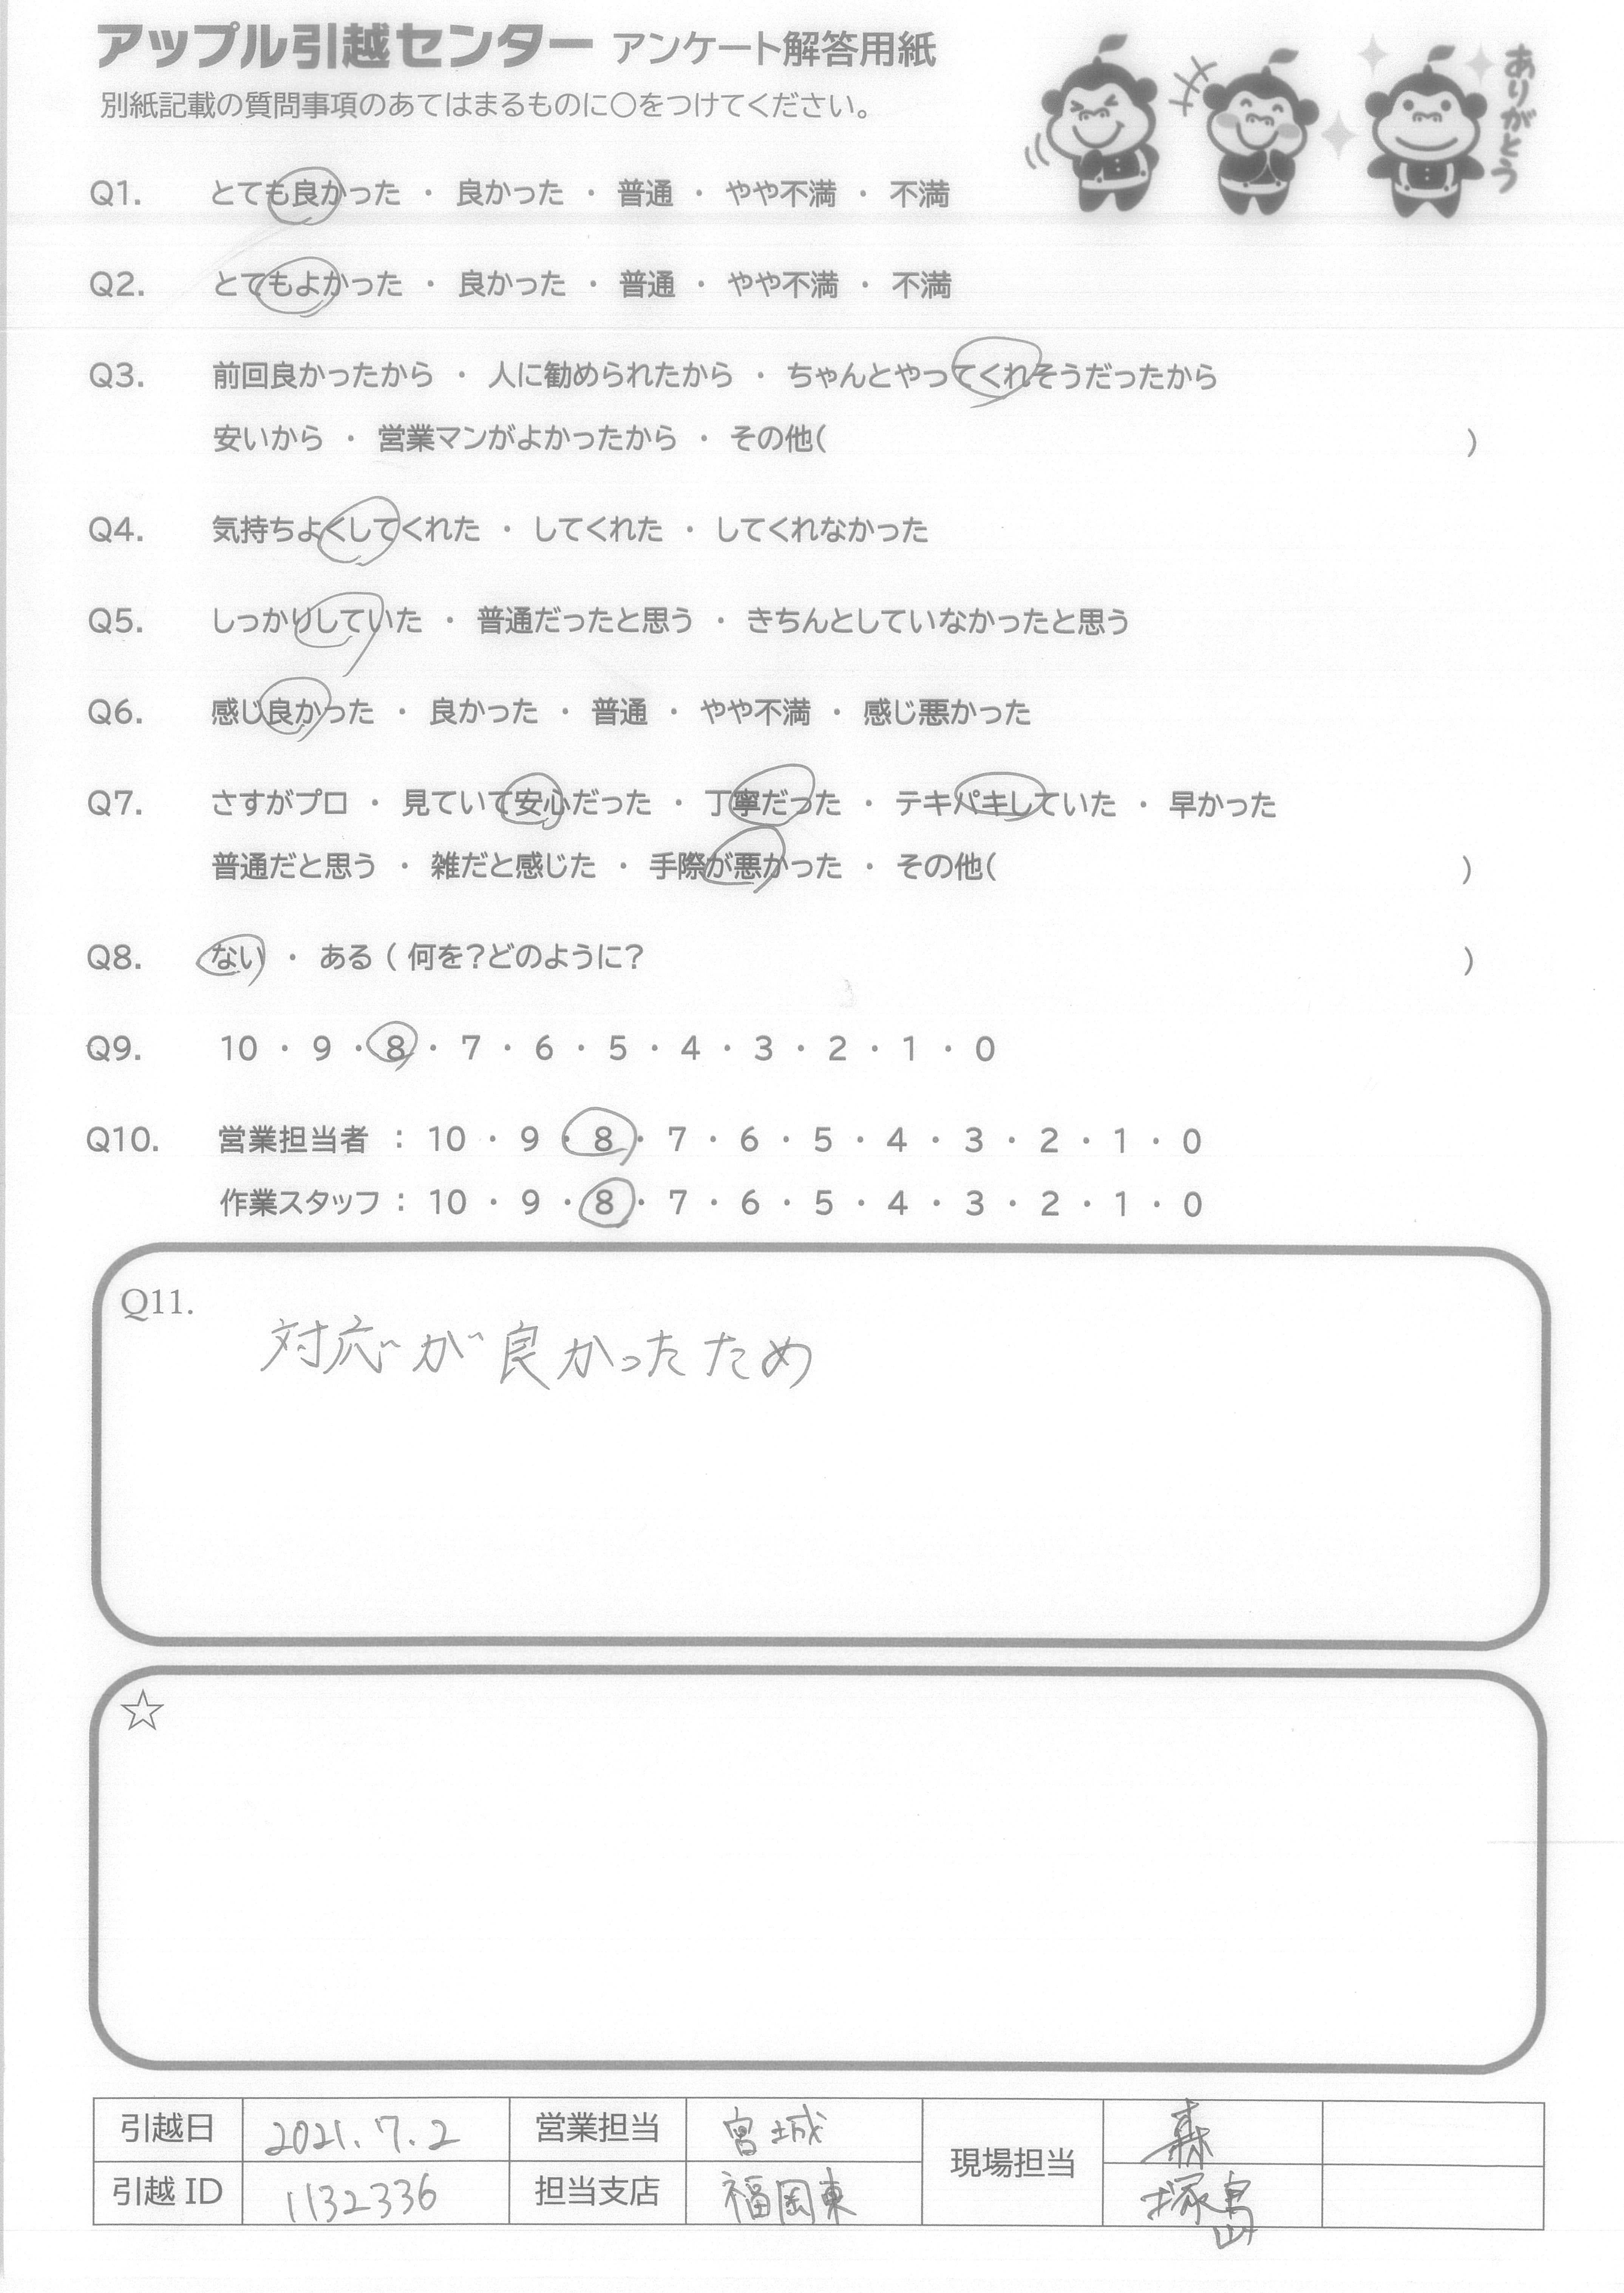 アップル引越センター アンケート解答用紙
別紙記載の質問事項のあてはまるものに○をつけてください。
ありがとう
Q1. とても良かった ・ 良かった ・ 普通 ・ やや不満 ・ 不満
Q2. とてもよかった ・ 良かった ・ 普通 ・ やや不満 ・ 不満
Q3. 前回良かったから ・ 人に勧められたから ・ ちゃんとやってくれそうだったから
安いから ・ 営業マンがよかったから ・ その他( )
Q4. 気持ちよくしてくれた ・ してくれた ・ してくれなかった
Q5. しっかりしていた ・ 普通だったと思う ・ きちんとしていなかったと思う
Q6. 感じ良かった ・ 良かった ・ 普通 ・ やや不満 ・ 感じ悪かった
Q7. さすがプロ ・ 見ていて安心だった ・ 丁寧だった ・ テキパキしていた ・ 早かった
普通だと思う ・ 雑だと感じた ・ 手際が悪かった ・ その他( )
Q8. ない ・ ある ( 何を?どのように? )
Q9. 10 ・ 9 ・ 8 ・ 7 ・ 6 ・ 5 ・ 4 ・ 3 ・ 2 ・ 1 ・ 0
Q10. 営業担当者 : 10 ・ 9 ・ 8 ・ 7 ・ 6 ・ 5 ・ 4 ・ 3 ・ 2 ・ 1 ・ 0
作業スタッフ : 10 ・ 9 ・ 8 ・ 7 ・ 6 ・ 5 ・ 4 ・ 3 ・ 2 ・ 1 ・ 0
Q11.
対応が良かったため
☆
引越日 2021.7.2 営業担当 宮城 現場担当 森
引越 ID 1132336 担当支店 福岡東 塚島